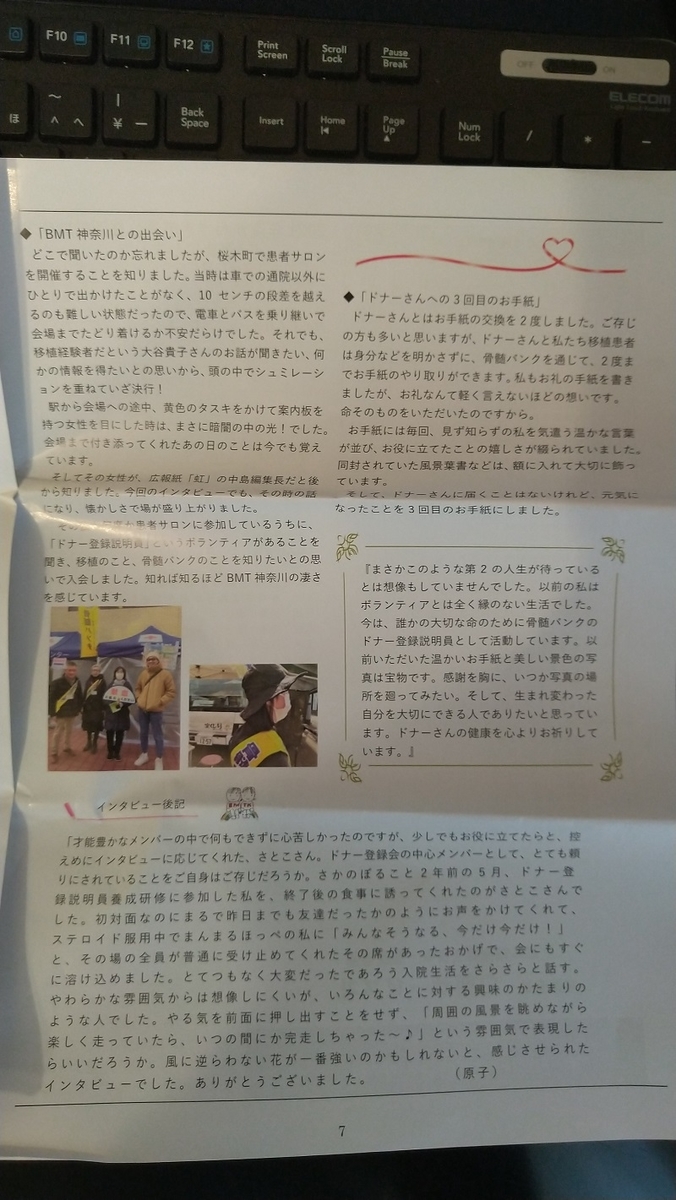 F10
F11
F12
Print
Screen
Scroll
Lock
Pause
Break
OFF
ON
ELECOM
ほ
～
^ へ
|
¥ ー
Back
Space
Insert
Home
Page
Up
Num
Lock
/
*
−
◆「BMT 神奈川との出会い」
どこで聞いたのか忘れましたが、桜木町で患者サロン
を開催することを知りました。当時は車での通院以外に
ひとりで出かけたことがなく、10 センチの段差を越え
るのも難しい状態だったので、電車とバスを乗り継いで
会場までたどり着けるか不安だらけでした。それでも、
移植経験者だという大谷貴子さんのお話が聞きたい、何
かの情報を得たいとの思いから、頭の中でシュミレーシ
ョンを重ねていざ決行！
駅から会場への途中、黄色のタスキをかけて案内板を
持つ女性を目にした時は、まさに暗闇の中の光！でした。
会場まで付き添ってくれたあの日のことは今でも覚え
ています。
そしてその女性が、広報紙「虹」の中島編集長だと後
から知りました。今回のインタビューでも、その時の話
になり、懐かしさで場が盛り上がりました。
患者サロンに参加しているうちに、
「ドナー登録説明員」というボランティアがあることを
聞き、移植のこと、骨髄バンクのことを知りたいとの思
いで入会しました。知れば知るほど BMT 神奈川の凄さ
を感じています。
◆「ドナーさんへの 3 回目のお手紙」
ドナーさんとはお手紙の交換を 2 度しました。ご存じ
の方も多いと思いますが、ドナーさんと私たち移植患者
は身分などを明かさずに、骨髄バンクを通じて、2 度ま
でお手紙のやり取りができます。私もお礼の手紙を書き
ましたが、お礼なんて軽く言えないほどの想いです。
命そのものをいただいたのですから。
お手紙には毎回、見ず知らずの私を気遣う温かな言葉
が並び、お役に立てたことの嬉しさが綴られていました。
同封されていた風景葉書などは、額に入れて大切に飾っ
ています。
そして、ドナーさんに届くことはないけれど、元気に
なったことを 3 回目のお手紙にしました。
『まさかこのような第 2 の人生が待っている
とは想像もしていませんでした。以前の私は
ボランティアとは全く縁のない生活でした。
今は、誰かの大切な命のために骨髄バンクの
ドナー登録説明員として活動しています。以
前いただいた温かいお手紙と美しい景色の写
真は宝物です。感謝を胸に、いつか写真の場
所を廻ってみたい。そして、生まれ変わった
自分を大切にできる人でありたいと思ってい
ます。ドナーさんの健康を心よりお祈りして
います。』
インタビュー後記
「才能豊かなメンバーの中で何もできずに心苦しかったのですが、少しでもお役に立てたらと、控
えめにインタビューに応じてくれた、さとこさん。ドナー登録会の中心メンバーとして、とても頼
りにされていることをご自身はご存じだろうか。さかのぼること 2 年前の 5 月、ドナー登
録説明員養成研修に参加した私を、終了後の食事に誘ってくれたのがさとこさんで
した。初対面なのにまるで昨日までも友達だったかのようにお声をかけてくれて、
ステロイド服用中でまんまるほっぺの私に「みんなそうなる、今だけ今だけ！」
と、その場の全員が普通に受け止めてくれたその席があったおかげで、会にもすぐ
に溶け込めました。とてつもなく大変だったであろう入院生活をさらさらと話す。
やわらかな雰囲気からは想像しにくいが、いろんなことに対する興味のかたまりの
ような人でした。やる気を前面に押し出すことをせず、「周囲の風景を眺めながら
楽しく走っていたら、いつの間にか完走しちゃった～♪」という雰囲気で表現した
らいいだろうか。風に逆らわない花が一番強いのかもしれないと、感じさせられた
インタビューでした。ありがとうございました。
（原子）
7